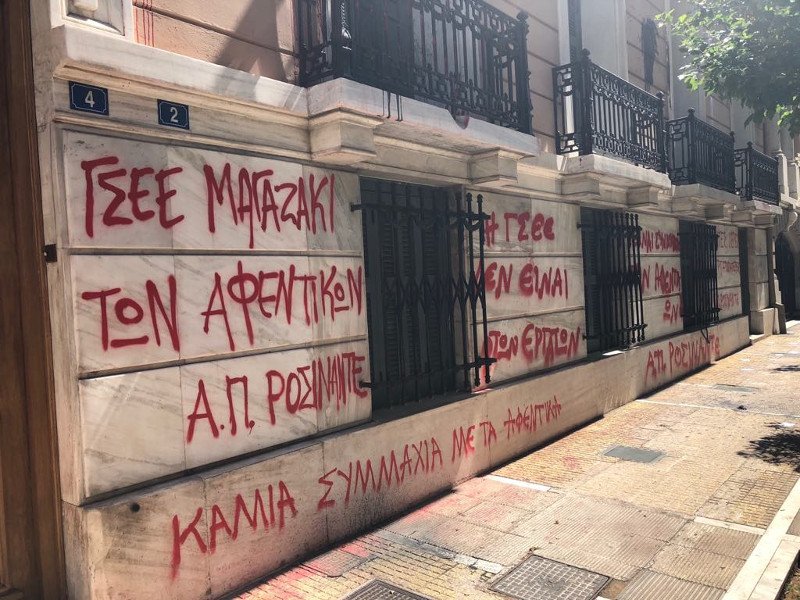 4
2
ΓΣΕΕ ΜΑΓΑΖΑΚΙ
ΤΩΝ ΑΦΕΝΤΙΚΩΝ
Α.Π. ΡΟΣΙΝΑΝΤΕ
Η ΓΣΕΕ
ΔΕΝ ΕΙΝΑΙ
ΤΩΝ ΕΡΓΑΤΩΝ
Α.Π. ΡΟΣΙΝΑΝΤΕ
ΚΑΜΙΑ ΣΥΜΜΑΧΙΑ ΜΕ ΤΑ ΑΦΕΝΤΙΚΑ